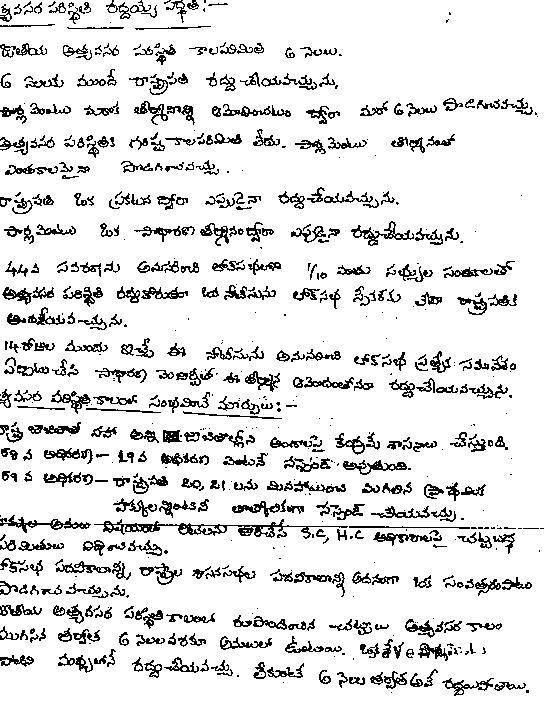 అత్యవసర పరిస్థితి రద్దయ్యే స్థితి :-
జాతీయ అత్యవసర పరిస్థితి కాలపరిమితి 6 నెలలు.
6 నెలలకు ముందే రాష్ట్రపతి రద్దు చేయవచ్చును.
పార్లమెంటు మరొక తీర్మానాన్ని ఆమోదించటం ద్వారా మరో 6 నెలలు పొడిగించవచ్చు.
అత్యవసర పరిస్థితికి గరిష్ట కాలపరిమితి లేదు. పార్లమెంటు తీర్మానంతో
ఎంతకాలమైనా పొడిగించవచ్చు.
రాష్ట్రపతి ఒక ప్రకటన ద్వారా ఎప్పుడైనా రద్దు చేయవచ్చును.
పార్లమెంటు ఒక సాధారణ తీర్మానం ద్వారా ఎప్పుడైనా రద్దు చేయవచ్చును.
44వ సవరణను అనుసరించి లోక్‌సభలోని 1/10 వంతు సభ్యుల సంతకాలతో
అత్యవసర పరిస్థితి రద్దుకోరుతూ ఒక నోటీసును లోక్‌సభ స్పీకరుకు లేదా రాష్ట్రపతికి
అందజేయవచ్చును.
14 రోజుల ముందు ఇచ్చే ఈ నోటీసును అనుసరించి లోక్‌సభ ప్రత్యేక సమావేశం
ఏర్పాటుచేసి సాధారణ మెజారిటీతో ఈ తీర్మాన ఆమోదంతోనూ రద్దు చేయవచ్చును.
అత్యవసర పరిస్థితి కాలంలో సంభవించే మార్పులు :-
రాష్ట్ర జాబితాతో సహా అన్ని జాబితాల్లోని అంశాలపై కేంద్రమే శాసనాలు చేస్తుంది.
అధికరణ - 19వ అధికరణ వెంటనే సస్పెండ్ అవుతుంది.
అధికరణ - రాష్ట్రపతి 20, 21 లను మినహాయించి మిగిలిన ప్రాథమిక
హక్కులన్నింటినీ తాత్కాలికంగా సస్పెండ్ చేయవచ్చు.
హక్కుల అమలు విషయంలో S.C, H.C అధికారాలపై చట్టబద్ధ
పరిమితులు విధించవచ్చు.
లోక్‌సభ పదవీకాలాన్ని, రాష్ట్రాల శాసనసభల పదవీకాలాన్ని అదనంగా ఒక సంవత్సరంపాటు
పొడిగించవచ్చును.
జాతీయ అత్యవసర పరిస్థితి కాలంలో రూపొందించిన చట్టాలు అత్యవసర కాలం
ముగిసిన తర్వాత 6 నెలల వరకూ అమలులో ఉంటాయి. ఒకవేళ పార్లమెంటు
వాటిని మధ్యలోనే రద్దు చేయవచ్చు. లేకుంటే 6 నెలల తర్వాత అవే రద్దయిపోతాయి.